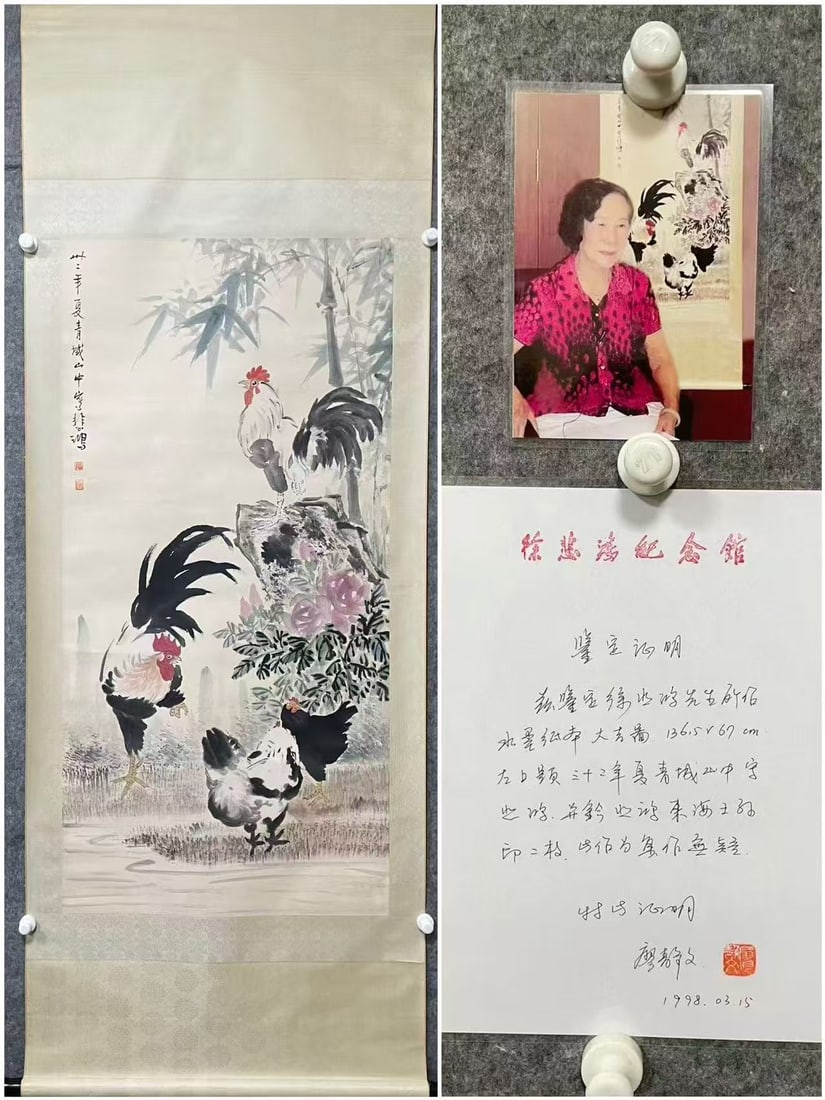 卅二年夏青城山中寫悲鴻
徐悲鴻紀念館
鑒定证明
兹鑒定徐悲鸿先生所作
水墨纸本大吉圖 136.5×67cm
左上题三十二年夏青城山中写
悲鸿.并鈐悲鸿東海王孙
印二枚.此作为真作無疑.
特此证明
廖静文
1998.03.15